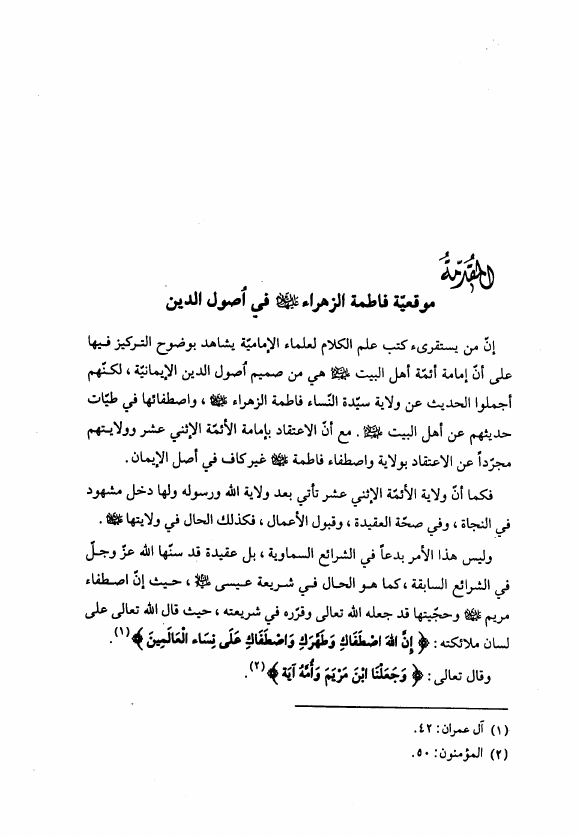 المقدّمة
موقعيّة فاطمة الزهراء عليها السلام في أصول الدين
إنّ من يستقرىء كتب علم الكلام لعلماء الإماميّة يشاهد بوضوح التركيز فيها
على أنّ إمامة أئمّة أهل البيت عليهم السلام هي من صميم أصول الدين الإيمانيّة ، لكنّهم
أجملوا الحديث عن ولاية سيّدة النّساء فاطمة الزهراء عليها السلام ، واصطفائها في طيّات
حديثهم عن أهل البيت عليهم السلام . مع أنّ الاعتقاد بإمامة الأئمّة الإثني عشر وولايتهم
مجرّداً عن الاعتقاد بولاية واصطفاء فاطمة عليها السلام غير كاف في أصل الإيمان .
فكما أنّ ولاية الأئمّة الإثني عشر تأتي بعد ولاية الله ورسوله ولها دخل مشهود
في النجاة ، وفي صحّة العقيدة ، وقبول الأعمال ، فكذلك الحال في ولايتها عليها السلام .
وليس هذا الأمر بدعاً في الشرائع السماوية ، بل عقيدة قد سنّها الله عزّ وجلّ
في الشرائع السابقة ، كما هو الحال في شريعة عيسى عليه السلام ، حيث إنّ اصطفاء
مريم عليها السلام وحجّيتها قد جعله الله تعالى وقرّره في شريعته ، حيث قال الله تعالى على
لسان ملائكته : ﴿ إِنَّ اللهَ اصْطَفَاكِ وَطَهَّرَكِ وَاصْطَفَاكِ عَلَى نِسَاءِ الْعَالَمِينَ ﴾(١).
وقال تعالى : ﴿ وَجَعَلْنَا ابْنَ مَرْيَمَ وَأُمَّهُ آيَةً ﴾(٢).
(١) آل عمران : ٤٢.
(٢) المؤمنون : ٥٠.